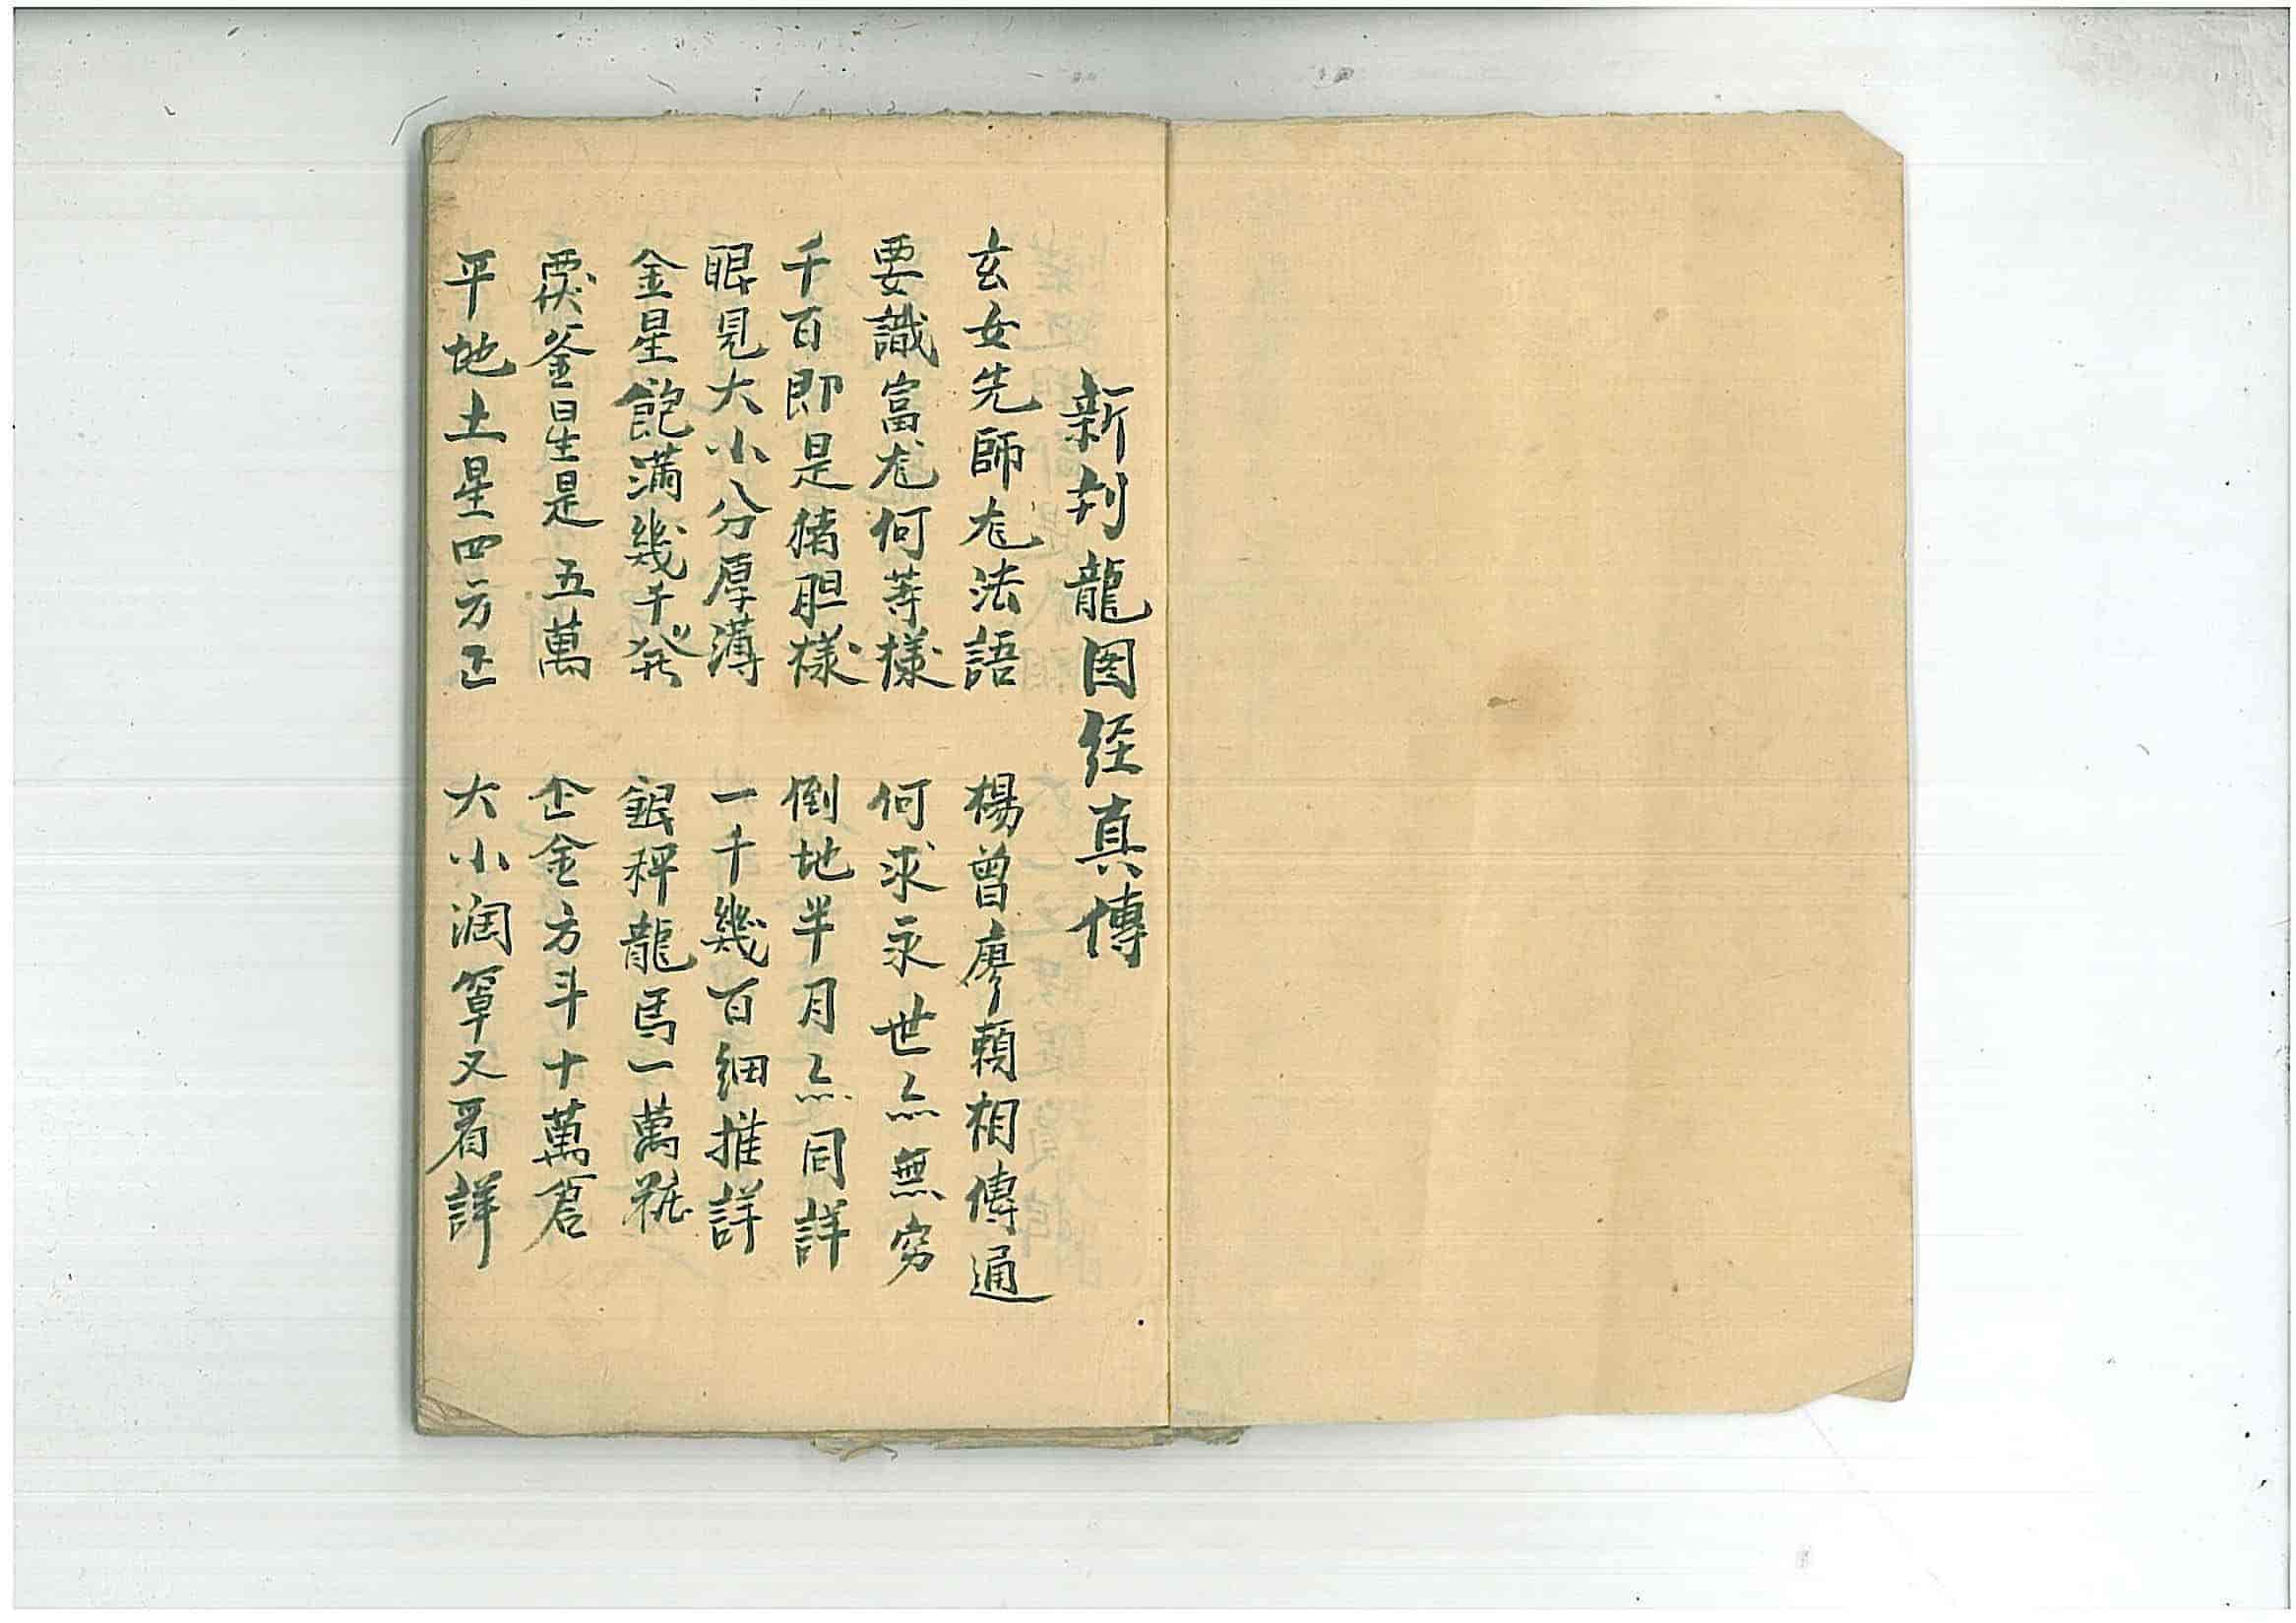 新刋龍图经真傳
玄女先師尨法語　楊曾廖賴相傳通
要識富尨何等樣　何求永世亦無穷
千百即是猪胆樣　倒地半月亦同詳
眼見大小分厚薄　一千幾百細推詳
金星飽满幾千　銀秤龍馬一萬
釜星是五萬　金方斗十萬倉
平地土星四方正　大小濶又看詳